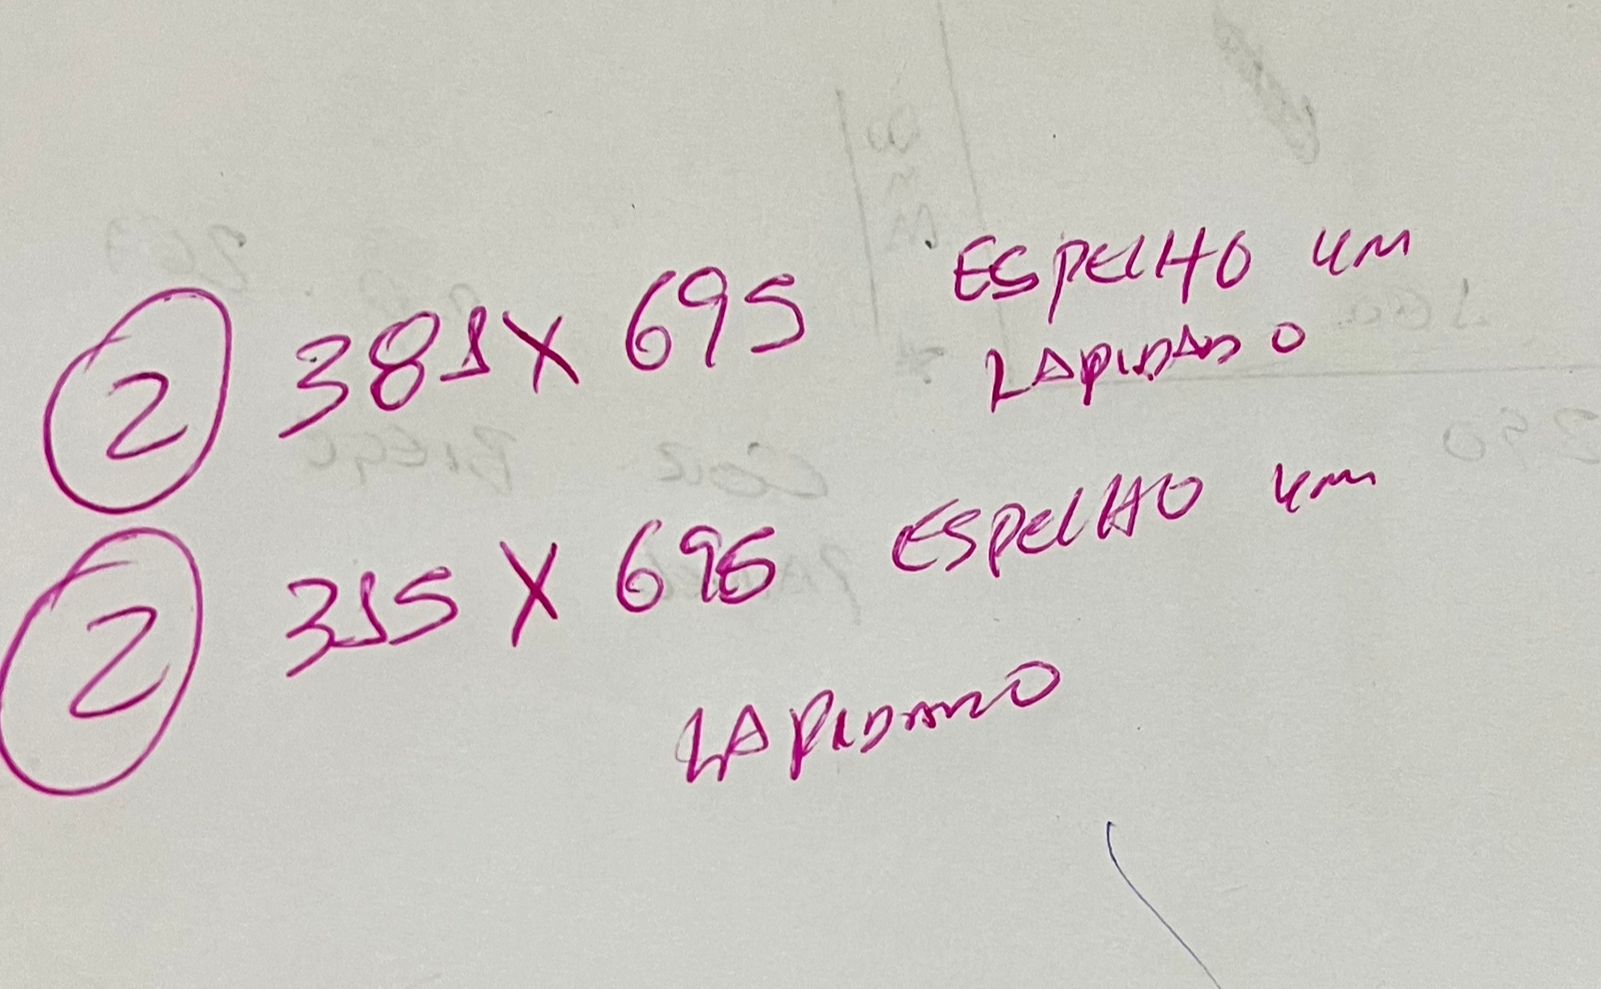 2 381 X 695 ESPELHO 4M
LAPIDADO
2 315 X 695 ESPELHO 4mm
LAPIDADO